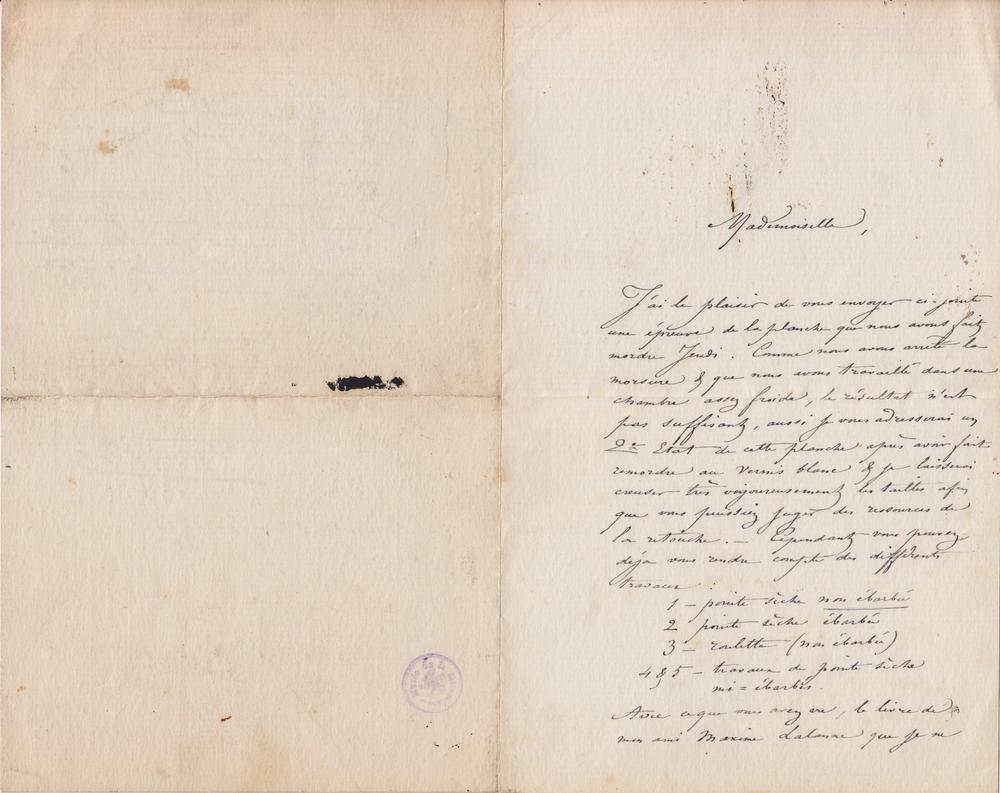 Mademoiselle,
J'ai le plaisir de vous envoyer ci-jointe
une épreuve de la planche que nous avons fait
mordre Jeudi. Comme nous avons arrêté la
morsure & que nous avons travaillé dans une
chambre assez froide, le résultat n'est
pas suffisant, aussi je vous adresserai un
2e Etat de cette planche après avoir fait
remordre au vernis blanc & je laisserai
creuser très vigoureusement les tailles afin
que vous puissiez juger des ressources de
la retouche. — Cependant vous pouvez
déja vous rendre compte des différents
travaux.
1 — pointe sèche non ébarbée
2 pointe sèche ébarbée
3 — roulette (non ébarbée)
4 & 5 — travaux de pointe sèche
mi = ébarbés.
Avec ce que vous avez vu, le livre de
mon ami Maxime Lalanne que je ne